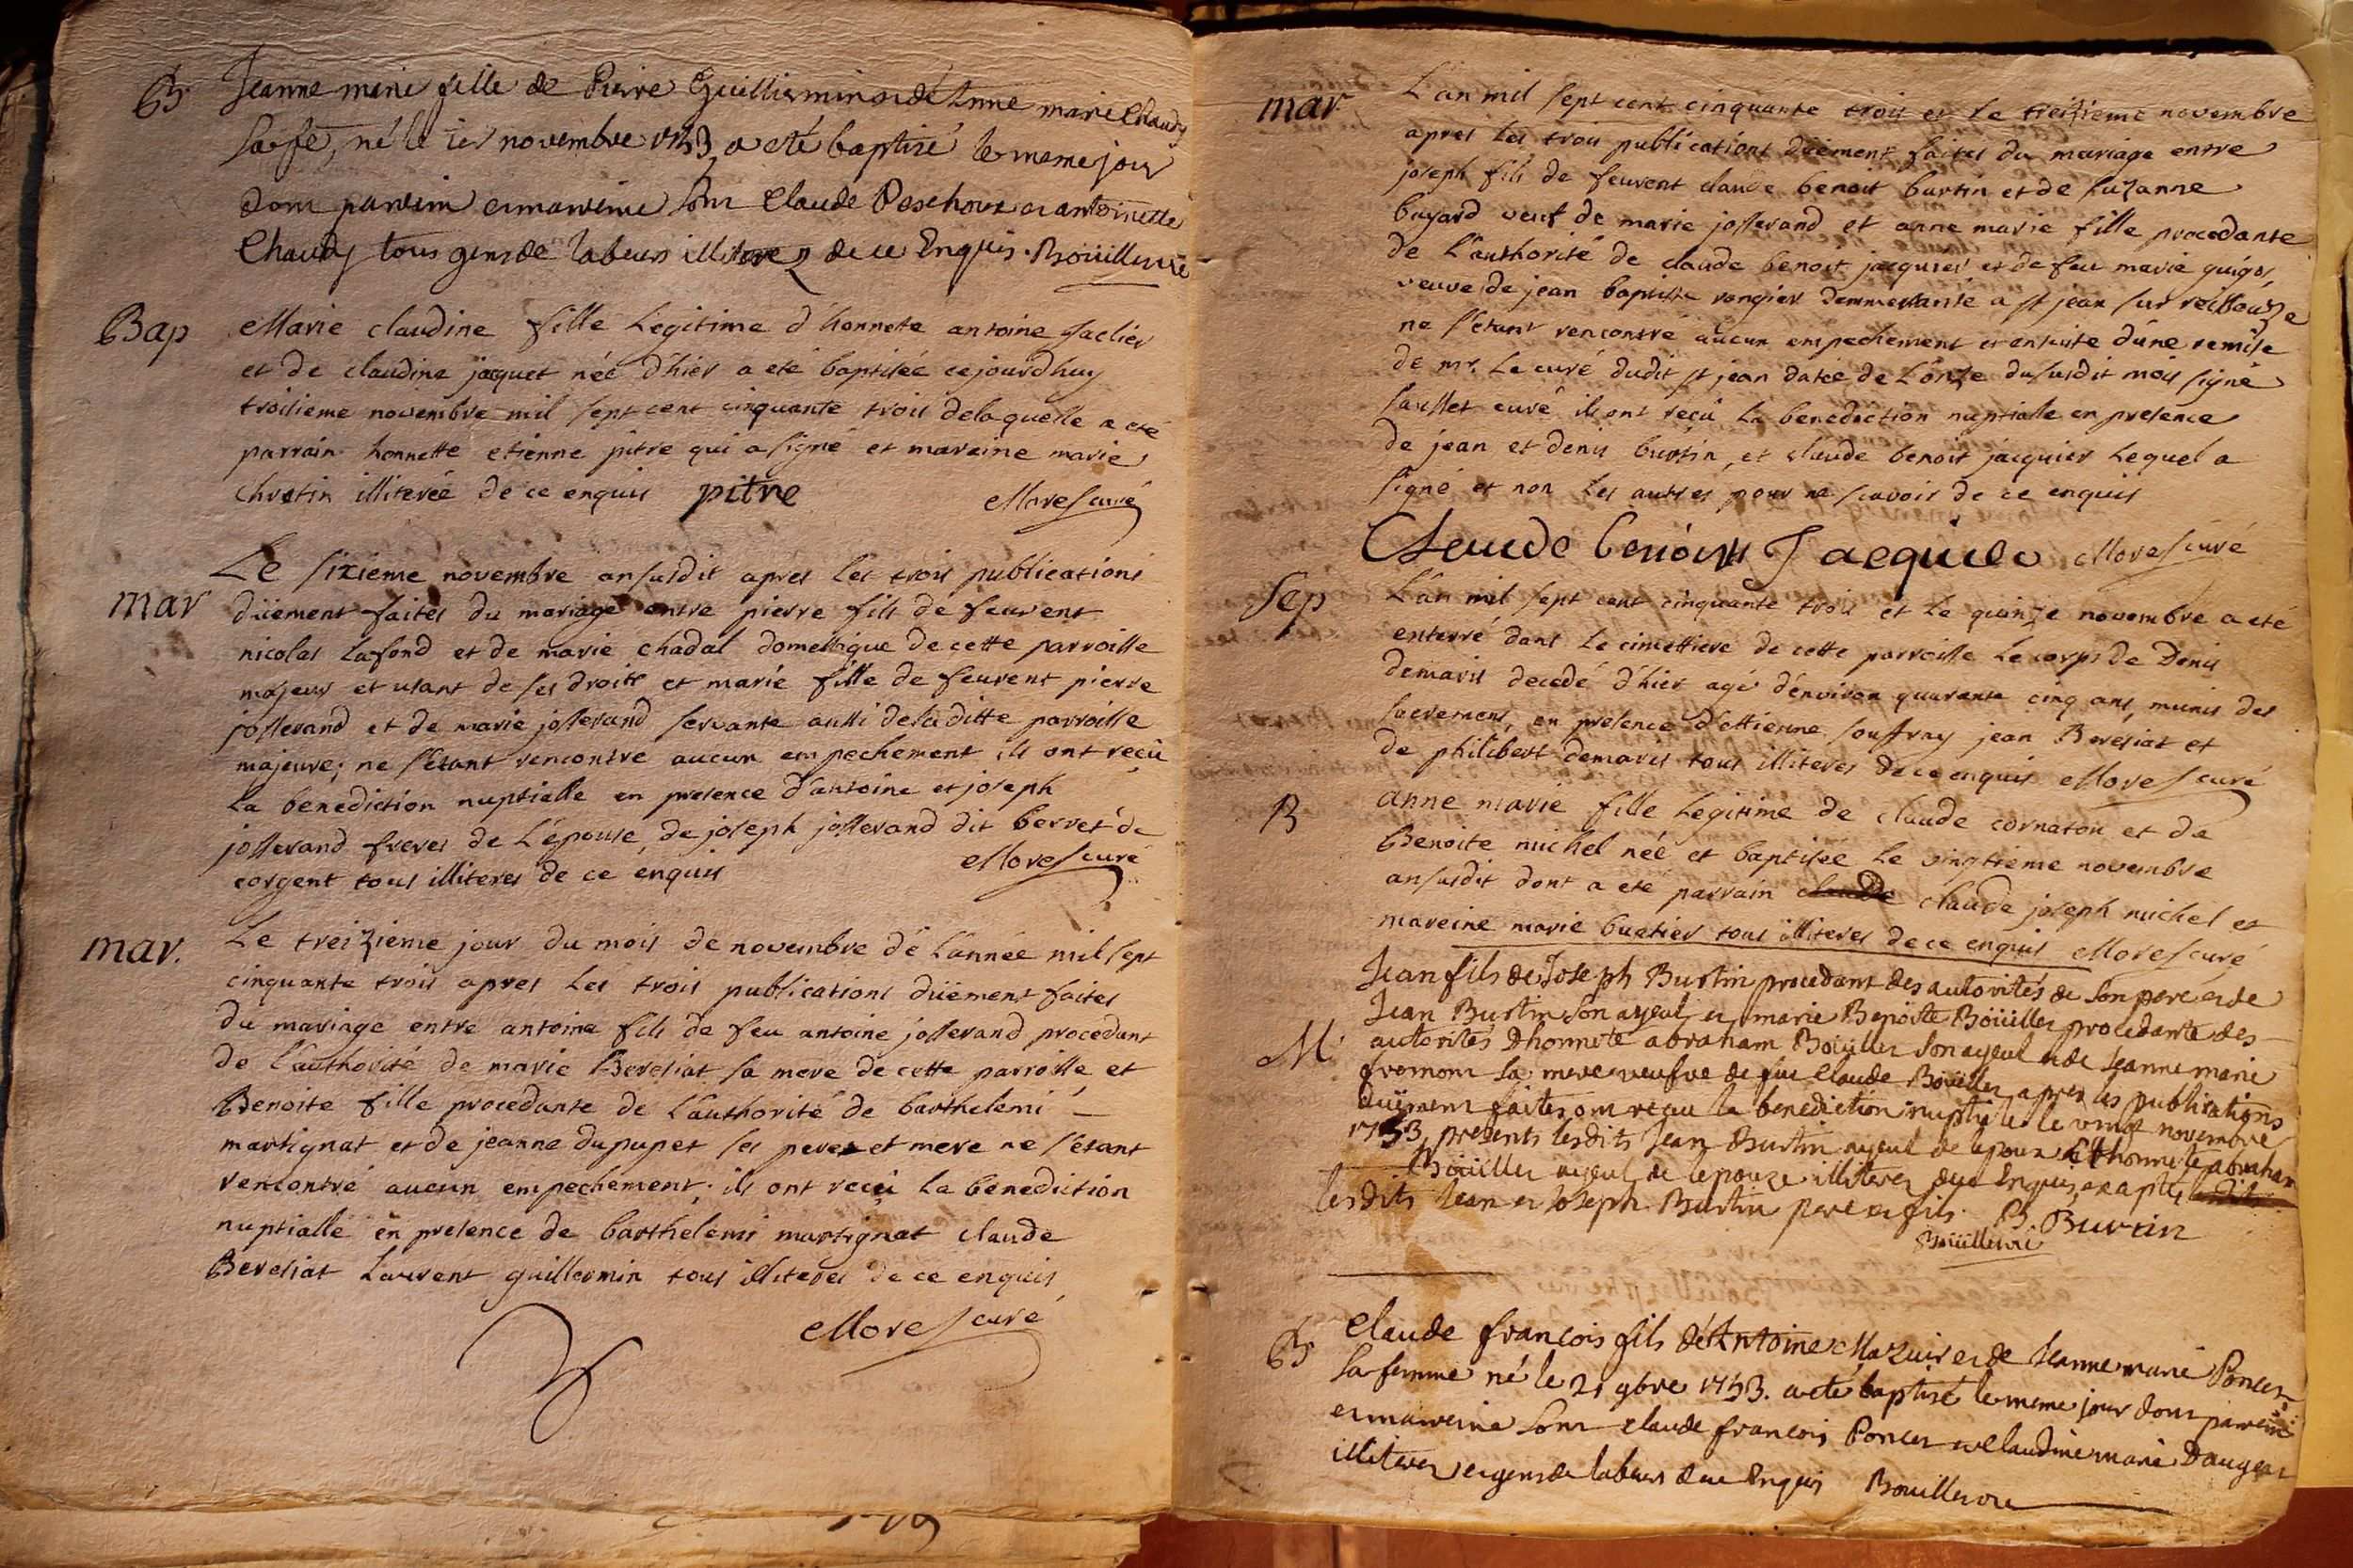 B
Jeanne marie fille de Pierre Guilliermin et de Anne marie Chaudy
sa fe, né le 1er novembre 1753, a eté baptisé le meme jour
dont parrein et marreine sont Claude Poschoux et antoinette
Chaudy tous gens de labeur illiterez de ce Enquis. Boüillerve
Bap
Marie claudine fille Legitime d'honnete antoine
et de claudine jacquet née d'hier a eté baptisée cejourdhuy
troisieme novembre mil sept cent cinquante trois delaquelle a eté
parrain honnette etienne pitre qui a signé et mareine marie
chretin illiterée de ce enquis pitre Mores curé
mar
Le sixieme novembre ansusdit apres les trois publications
düement faites du mariage entre pierre fils de feurent
nicolas Lafond et de marie chadal domestique de cette parroisse
majeur et usant de ses droits et marie fille de feurent pierre
josserand et de marie josserand servante aussi deladitte parroisse
majeure; ne s'etant rencontre aucun empechement ils ont reçû
La benediction nuptialle en presence d'antoine et joseph
josserand freres de L'épouse, de joseph josserand dit berret de
corgent tous illiteres de ce enquis Mores curé
mar.
Le treizieme jour du mois de novembre de L'année mil sept
cinquante trois apres Les trois publications düement faites
du mariage entre antoine fils de feu antoine josserand procedant
de l'authorité de marie Bereziat sa mere de cette parroisse et
Benoite fille procedante de L'authorité de barthelemi
martignat et de jeanne dupupet ses peres et mere ne s'etant
rencontré aucun empechement; ils ont reçû La benediction
nuptialle en presence de barthelemi martignat claude
Bereziat Laurent guillermin tous illiteres de ce enquis
Mores curé
mar
L'an mil sept cent cinquante trois et Le treizieme novembre
apres Les trois publications düement faites du mariage entre
joseph fils de feurent claude benoit burtin et de suzanne
buyard veuf de marie josserand et anne marie fille procedante
de L'authorité de claude benoit jacquier et de feu marie guigos,
veuve de jean baptiste rongier demmerante a st jean sur reissouze
ne s'etant rencontré aucun empechement et ensuite d'une remise
de mr. Le curé dudit st jean datée de L'onze dususdit mois signé
curé ils ont reçû La benediction nuptialle en presence
de jean et denis burtin, et claude benoit jacquier Lequel a
signé et non Les autres pour ne scavoir de ce enquis
Claude benoist Jacquier Mores curé
Sep
L'an mil sept cent cinquante trois et Le quinze novembre a eté
enterré dans Le cimettiere de cette parroisse Le corps de Denis
demaris decedé d'hier agé d'environ quarante cinq ans, munis des
sacremens, en presence d'ettienne souffray jean Bereziat et
de philibert demaris tous illiteres de ce enquis Mores curé
B
anne marie fille Legitime de claude cornaton et de
Benoite michel née et baptisée Le vingtieme novembre
ansusdit dont a eté parrain claude claude joseph michel et
mareine marie buatier tous illiteres de ce enquis Mores curé
M
Jean fils de Joseph Burtin procedant des autorités de son pere et de
Jean Burtin son ayeul et marie Benoite Boüiller procedante des
autorités Dhonnete abraham Boüiller son ayeul et de Jeanne marie
fromont sa mere veufve de feu Claude Boüiller apres les publications
duëment faites ont reçu la benediction nuptielle le vingt novembre
1753, presents lesdits Jean Burtin ayeul de lepoux Dhonnete abraham
Boüiller ayeul de lepouze illiterez de ce Enquis, exapté lesdits
lesdits Jean et Joseph Burtin pere et fils. B. Burtin
Boüillerve
B
Claude françois fils de Antoine Mazuir et de Jeanne marie Poncet
sa femme né le 21 9bre 1753. a eté baptisé le meme jour dont parrein
et marreine sont claude françois Poncet et Claudine marie Dauger
illiterez et gens de labeur de ce Enquis Bouillerve